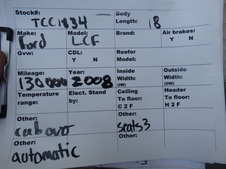 Stock#: TCC1834 Body Length: 18
Make: Ford Model: LCF Brand: Air brakes: Y N
Gvw: CDL: Y N Reefer Model:
Mileage: 130000 Year: 2008 Inside Width: Outside Width:
Temperature range: Elect. Stand by: Ceiling To floor: C 2 F Header To floor: H 2 F
Other: cabover Other: seats3
Other: automatic Other: